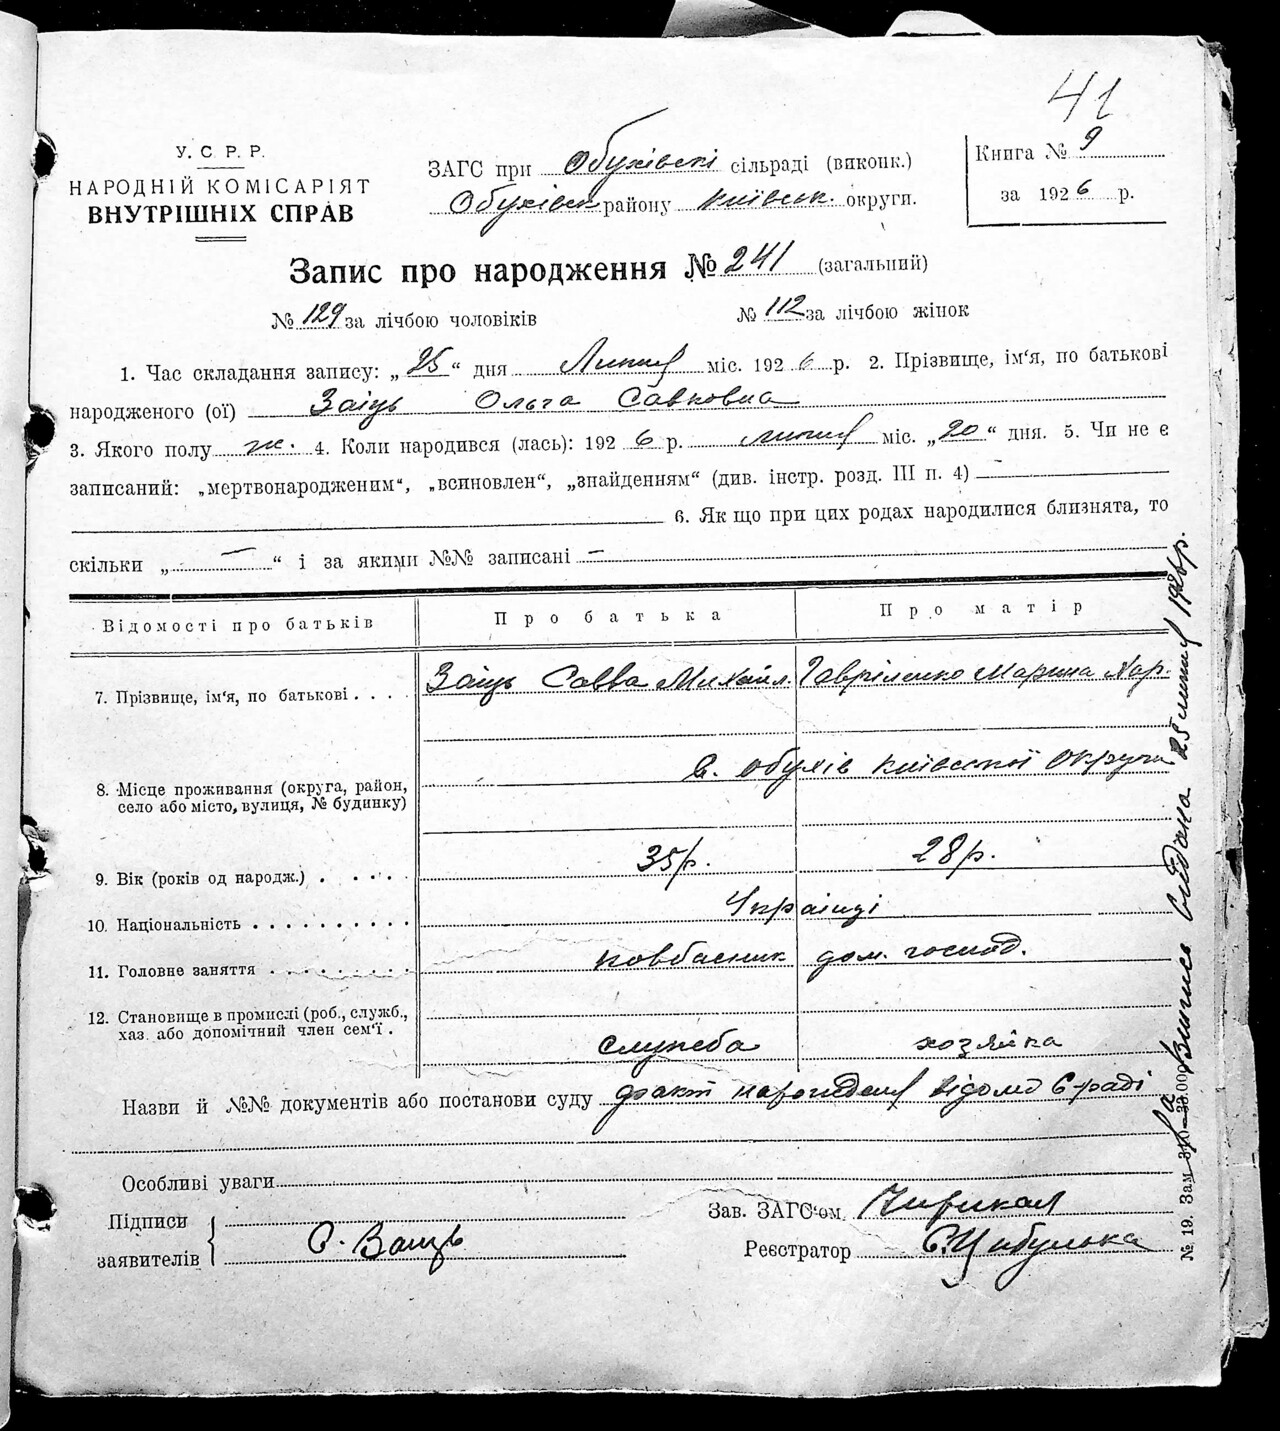 41
У. С. Р. Р.
НАРОДНІЙ КОМІСАРІЯТ
ВНУТРІШНІХ СПРАВ
ЗАГС при Обухівскі сільраді (виконк.)
Обухівск району київськ. округи.
Книга № 9
за 1926 р.
Запис про народження № 241 (загальний)
№ 129 за лічбою чоловіків № 112 за лічбою жінок
1. Час складання запису: „25“ дня Липня міс. 1926 р. 2. Прізвище, ім‘я, по батькові
народженого (ої) Заіць Ольга Савковна
3. Якого полу ж. 4. Коли народився (лась): 1926 р. липня міс. „20“ дня. 5. Чи не є
записаний: „мертвонародженим“, „всиновлен“, „знайденням“ (див. інстр. розд. III п. 4) —
6. Як що при цих родах народилися близнята, то
скільки „—“ і за якими №№ записані —
Відомості про батьків Про батька Про матір
7. Прізвище, ім‘я, по батькові . . . . Заіць Савва Михайл. Гавріленко Марина Хар.
8. Місце проживання (округа, район,
село або місто, вулиця, № будинку)
с. Обухів київської округи
9. Вік (років од народж.) . . . . . 35 р. 28 р.
10. Національність . . . . . . . . . . Українці
11. Головне заняття . . . . . . . . . ковбасник дом. господ.
12. Становище в промислі (роб., служб.,
хаз. або допомічний член сем‘ї .
служба хозяйка
Назви й №№ документів або постанови суду факт народженя відомо С-раді
Особливі уваги
Підписи
заявителів
С. Заіць
Зав. ЗАГС‘ом
Реєстратор Є. Цибулька
№ 19. Зам
Випись видана 25 липня 1926 р.